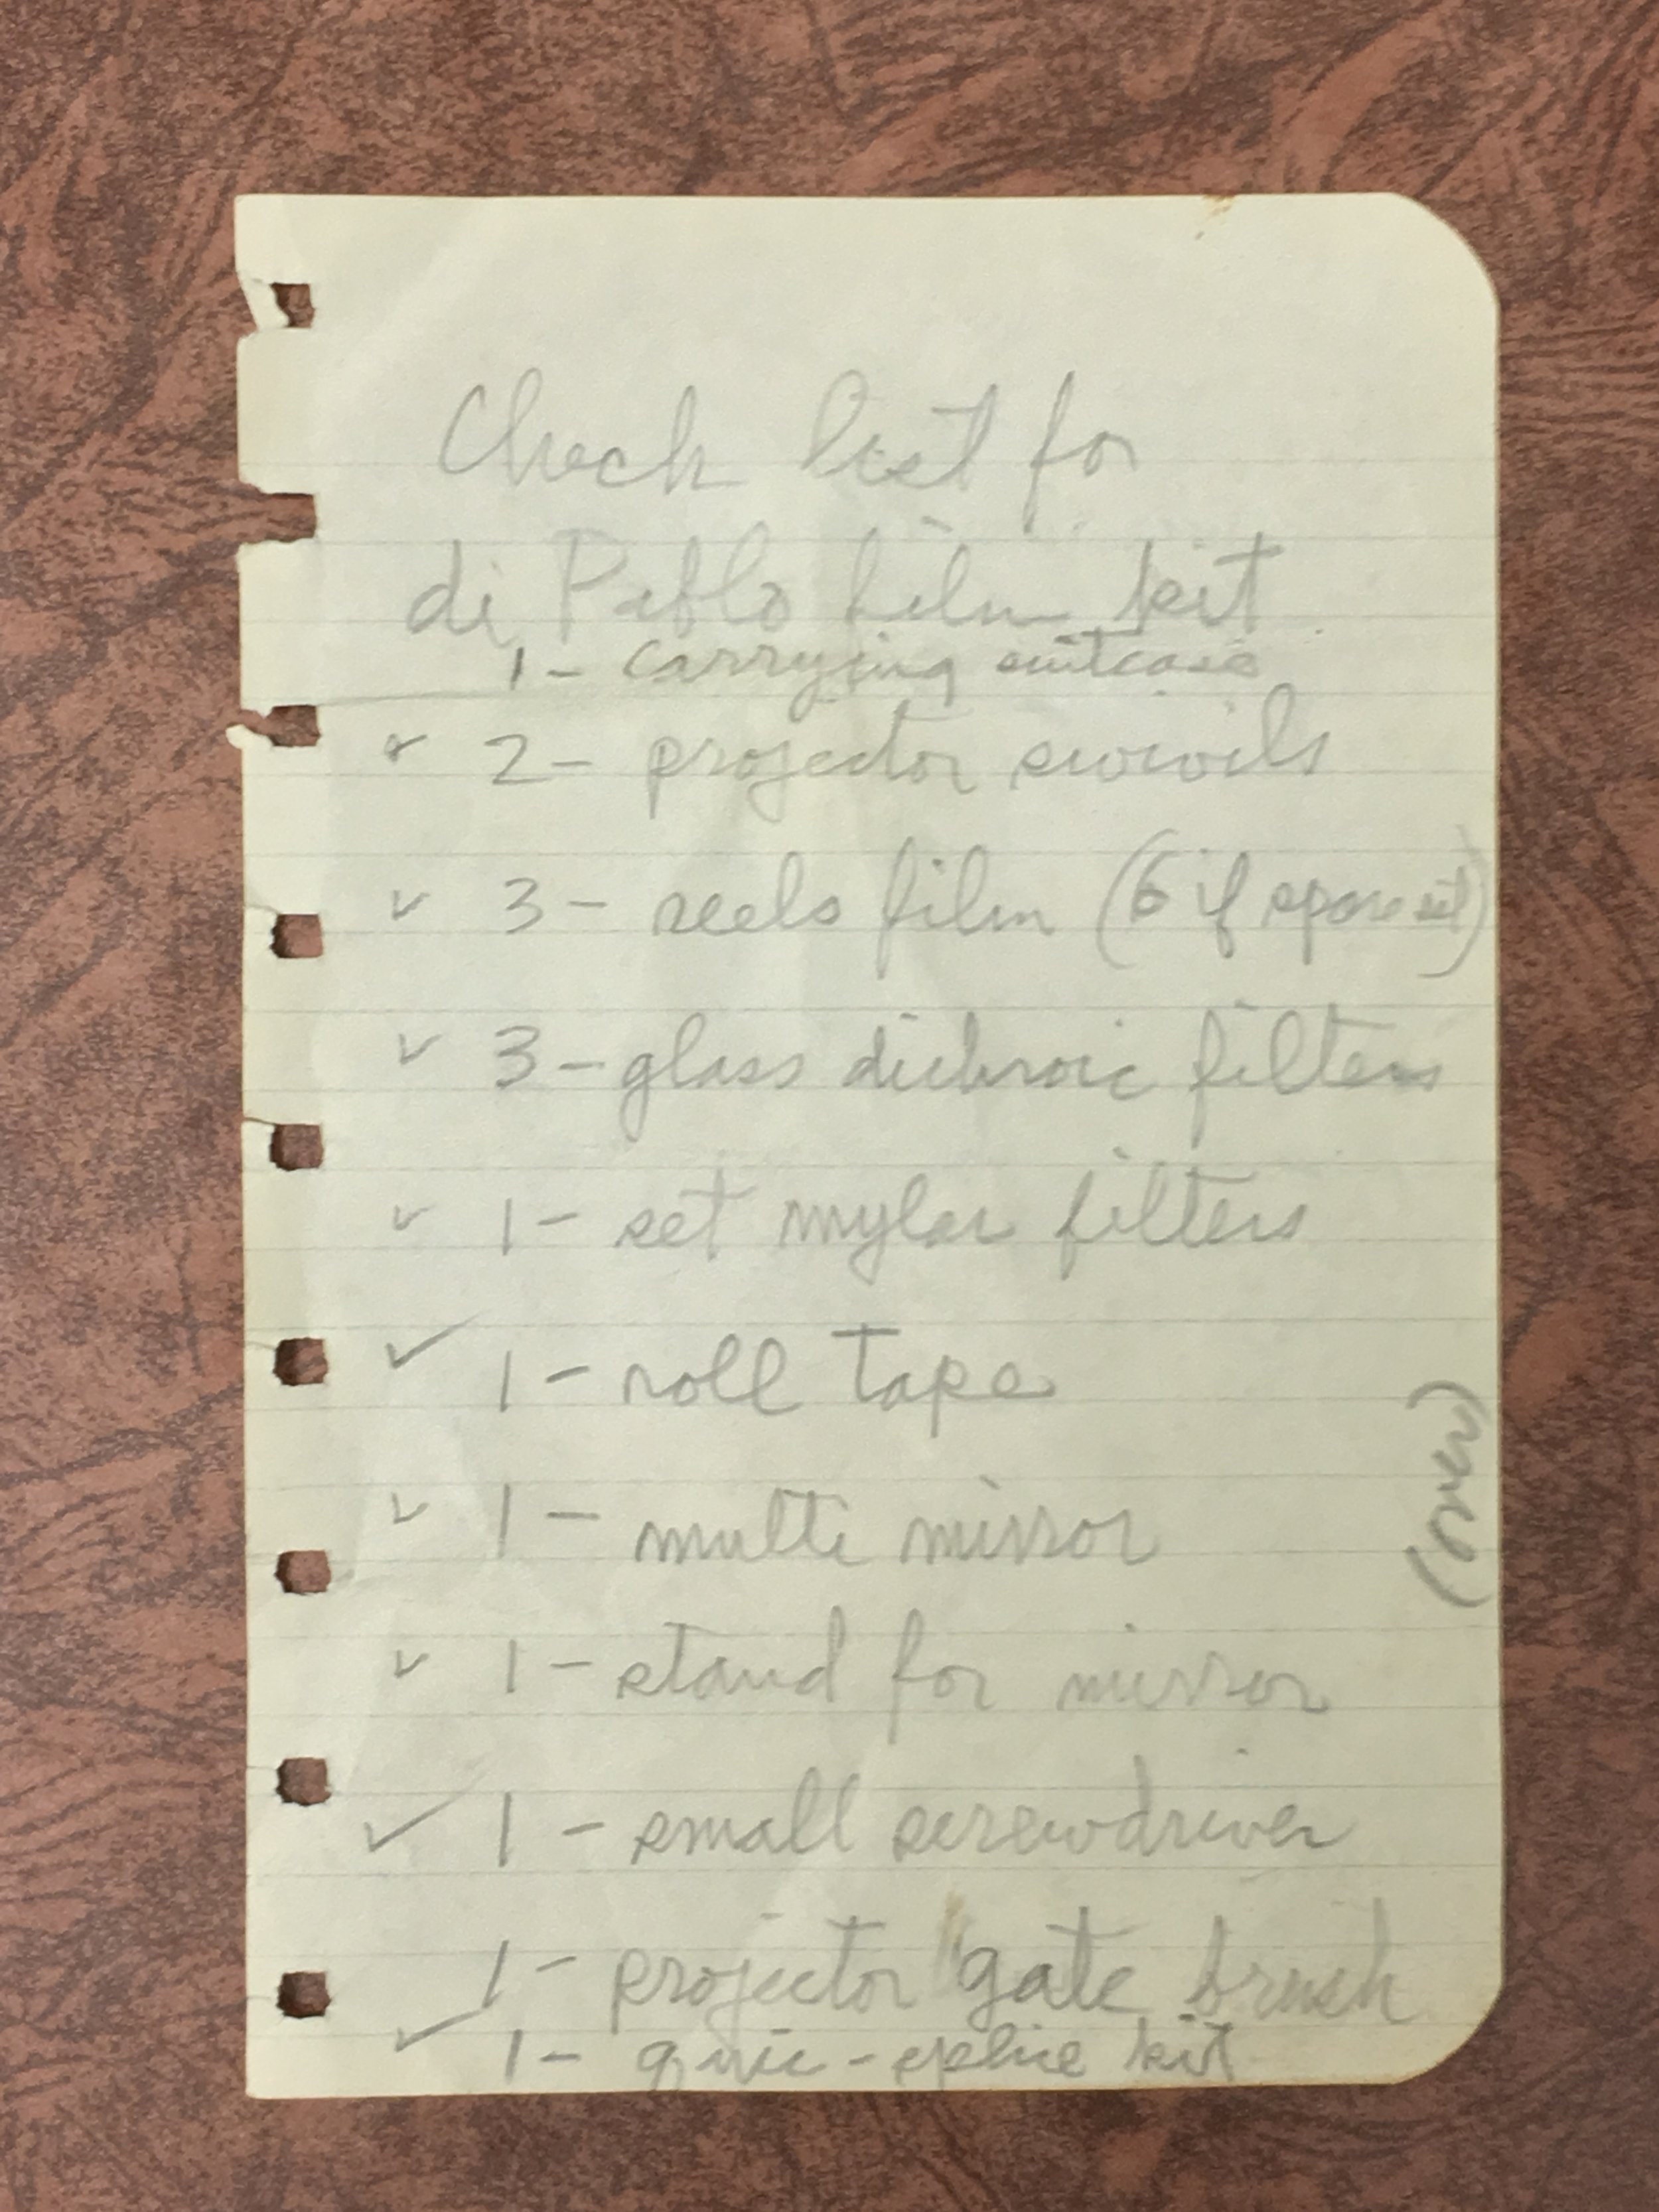 Check list for
di Pablo film kit
1- carrying suitcase
✓ 2- projector swivils
✓ 3- reels film (6 if spare set)
✓ 3- glass dichroic filters
✓ 1- set mylar filters
✓ 1- roll tape
✓ 1- multi mirror
✓ 1- stand for mirror
✓ 1- small screwdriver
1- projector gate brush
✓ 1- quic-splice kit
(over)